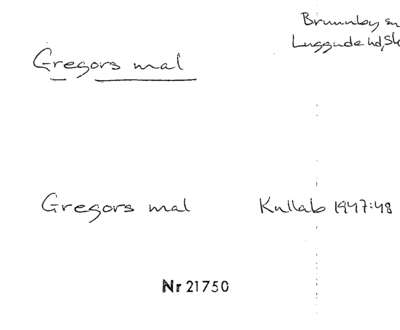 Brunnby sn
Luggude hd, Sk
Gregors mal
Gregors mal Kullab 1947:48
Nr 21750